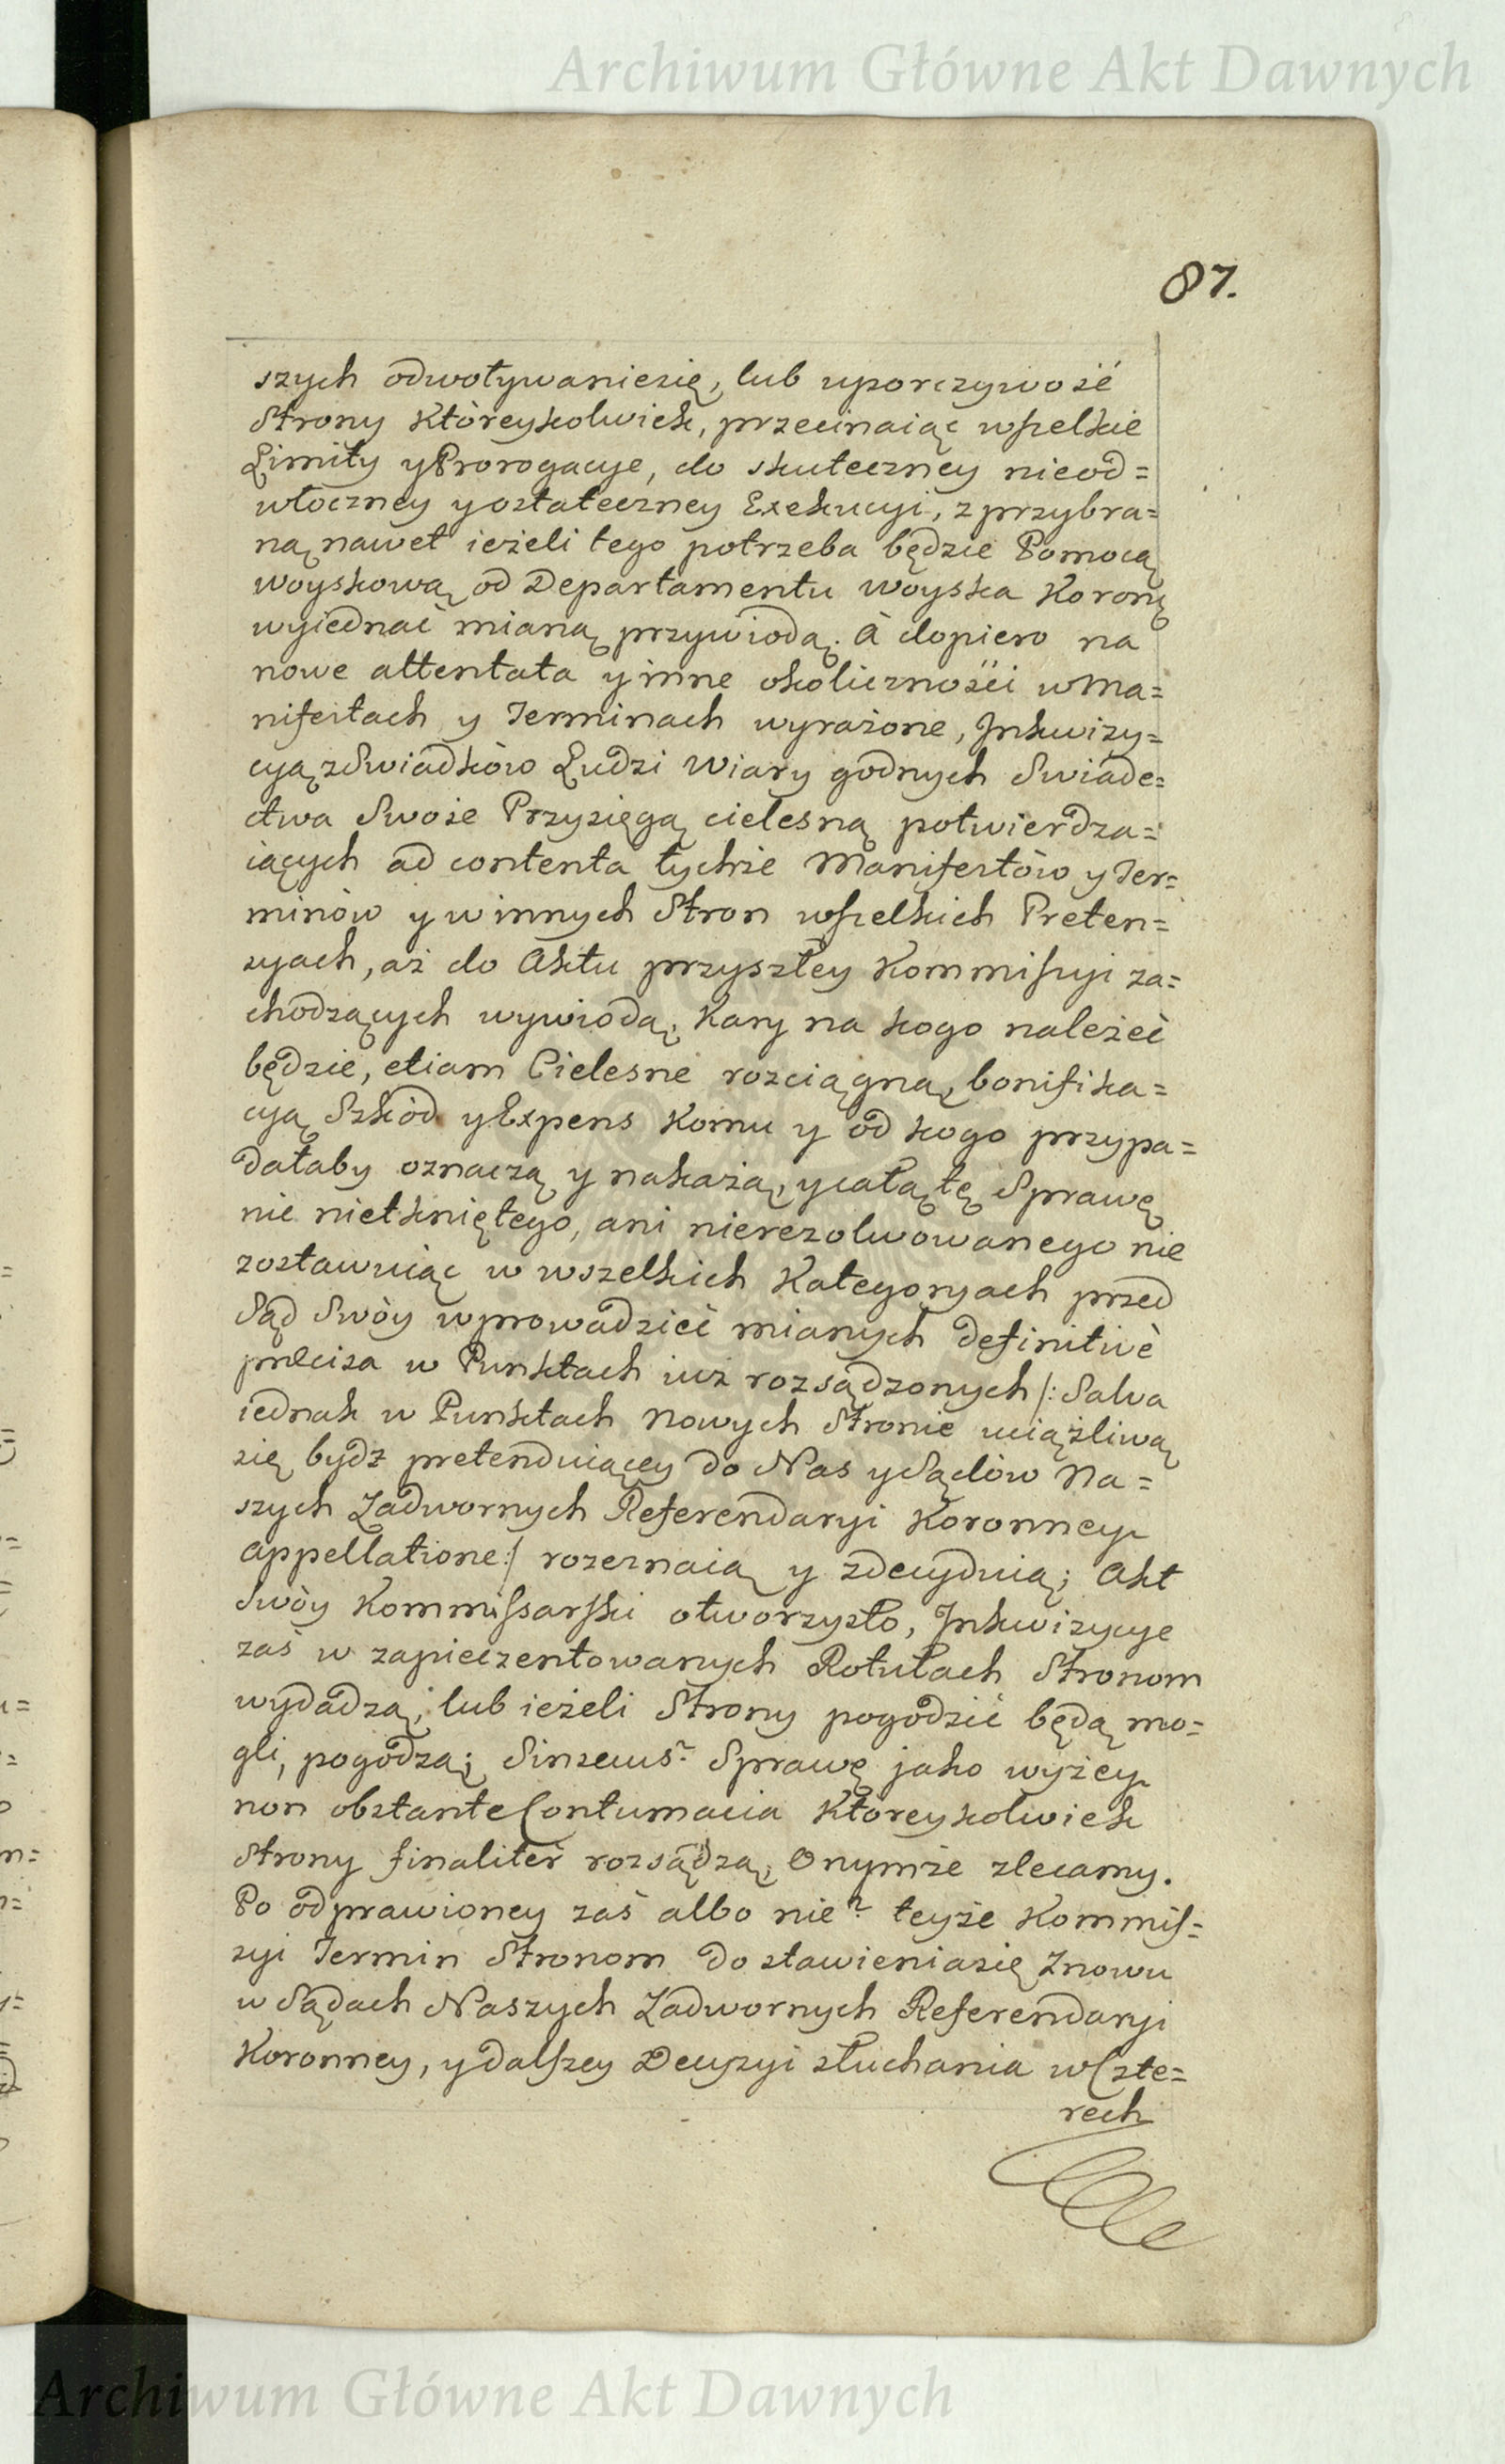 Archiwum Główne Akt Dawnych
87.
szych odwoływaniesię, lub uporczywość
Strony Któreykolwiek, przecinaiąc wszelkie
Limity y Prorogacye, do skuteczney nieod=
włoczney y ostateczney Exekucyi, z przybra=
ną nawet ieżeli tego potrzeba będzie Pomocą
woyskową od Departamentu Woyska Koronn
wyiednać mianą przywiodą. A dopiero na
nowe attentata y inne okoliczności w Ma=
nifestach y Terminach wyrażone, Inkwizy=
cyą z Swiadków Ludzi Wiary godnych Swiade=
ctwa Swoie Przysięgą cielesną potwierdza=
iących ad contenta tychże Manifestów y Ter=
minów y w innych Stron wszelkich Preten=
syach, aż do Aktu przyszłey Kommissyi za=
chodzących wywiodą, Kary na kogo należeć
będzie, etiam Cielesne rozciągną, bonifika=
cyą Szkód y Expens Komu y od kogo przypa=
dałaby oznaczą y nakażą, y całą tę Sprawę
nic nietkniętego, ani nierezolwowanego nie
zostawuiąc w wszelkich Kategoryach przed
Sąd Swóy wprowadzić mianych definitivè
præcisa w Punktach iuż rozsądzonych /: Salva
iednak w Punktach Nowych Stronie uciążliwą
się bydź pretenduiącey do Nas y Sądów Na=
szych Zadwornych Referendaryi Koronney
appellatione :/ rozeznaią y zdecyduią; Akt
Swóy Kommissarski otworzysto, Inkwizycye
zaś w zapieczentowanych Rotułach Stronom
wydadzą; lub ieżeli Strony pogodzić będą mo=
gli, pogodzą; Sinsecus Sprawę jako wyżey
non obstante Contumacia Któreykolwiek
Strony finaliter rozsądzą, Onymże zlecamy.
Po odprawioney zaś albo nie teyże Kommis=
syi Termin Stronom do stawieniasię Znowu
w Sądach Naszych Zadwornych Referendaryi
Koronney, y dalszey Decyzyi słuchania w Czte=
rech
Archiwum Główne Akt Dawnych